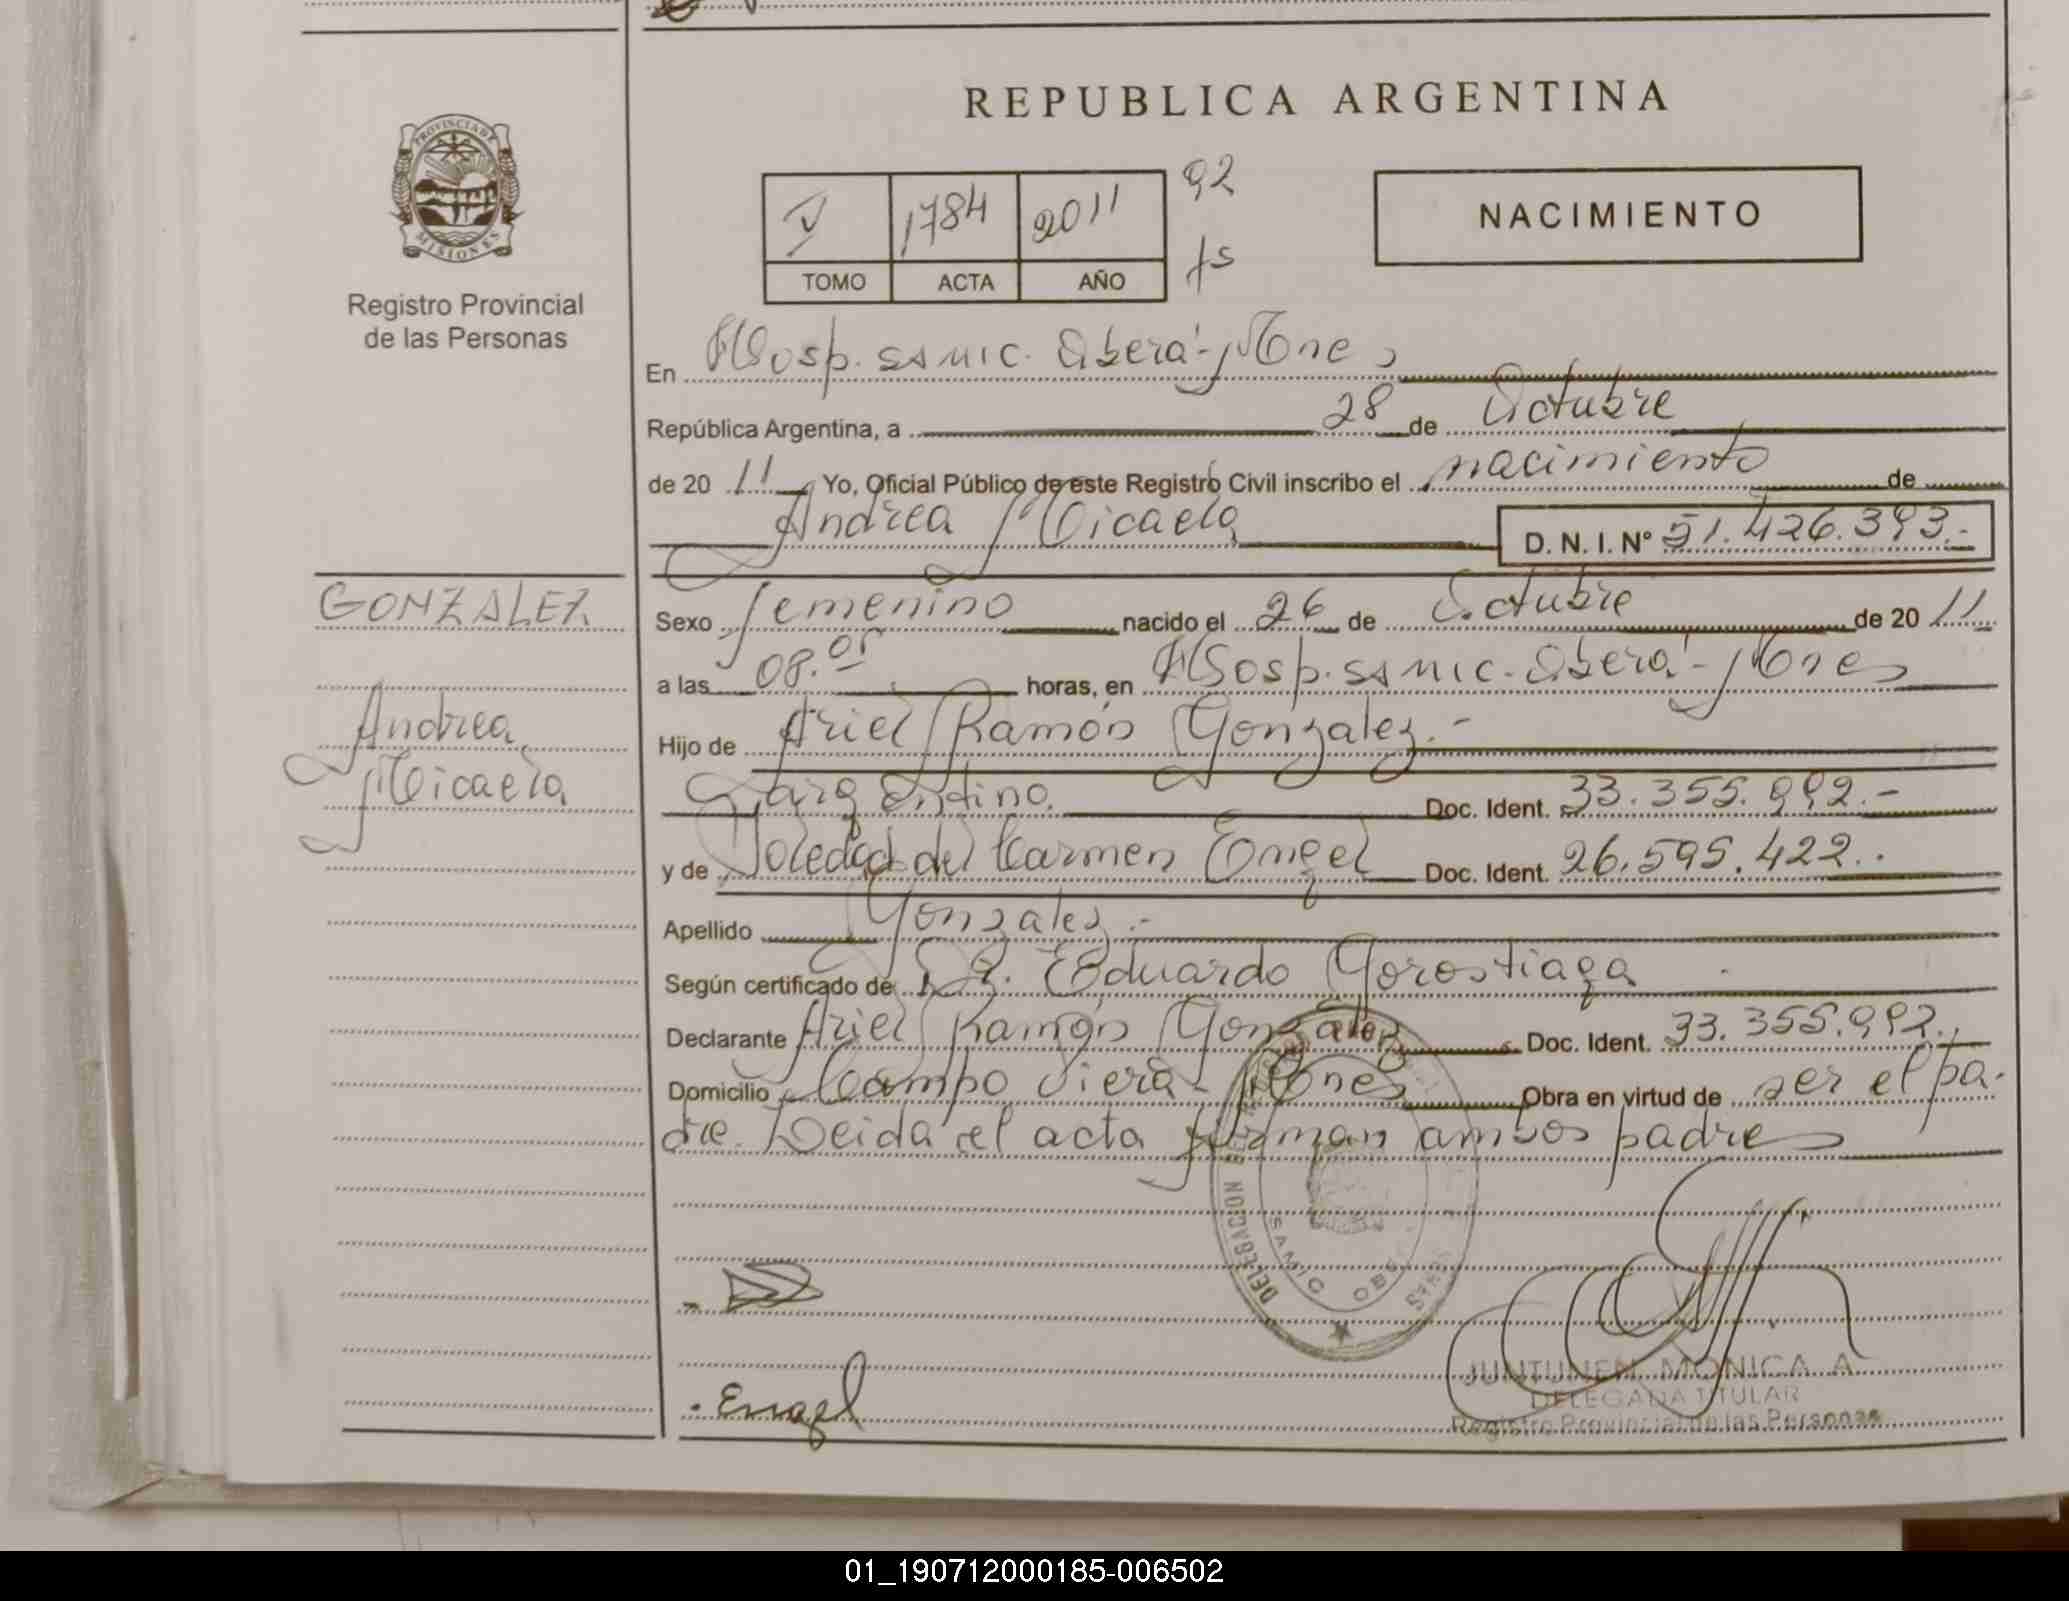 REPUBLICA ARGENTINA
PROVINCIA DE
MISIONES
Registro Provincial
de las Personas
V 1784 2011 92
TOMO ACTA AÑO fs
NACIMIENTO
En Hosp. SAMIC. Oberá - Mnes
República Argentina, a 28 de Octubre
de 20 11 Yo, Oficial Público de este Registro Civil inscribo el nacimiento de
Andrea Micaela D. N. I. Nº 51.426.393.-
GONZALEZ
Andrea
Micaela
Sexo femenino nacido el 26 de Octubre de 20 11
a las 08.05 horas, en Hosp. SAMIC. Oberá - Mnes
Hijo de Ariel Ramón Gonzalez.-
Doc. Ident. 33.355.992.-
y de Soledad del Carmen Engel Doc. Ident. 26.595.422.
Apellido Gonzalez.-
Según certificado de Dr. Eduardo Gorostiaga
Declarante Ariel Ramón Gonzalez Doc. Ident. 33.355.992.
Domicilio Campo Viera - Mnes Obra en virtud de ser el pa-
dre. Leida el acta firman ambos padres
DELEGACION
SAMIC OBE
Engel
JUNTUNEN MONICA A
DELEGADA TITULAR
Registro Provincial de las Personas
01_190712000185-006502